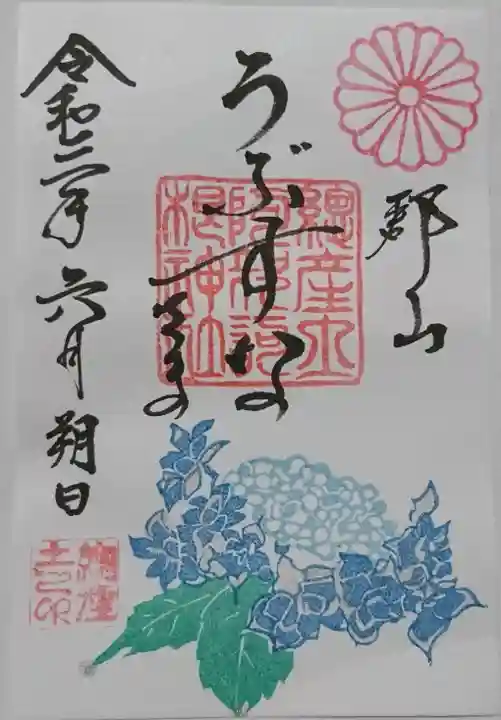 郡山
うぶすな
さま
總産土
阿邪訶
根神社
令和二年六月朔日